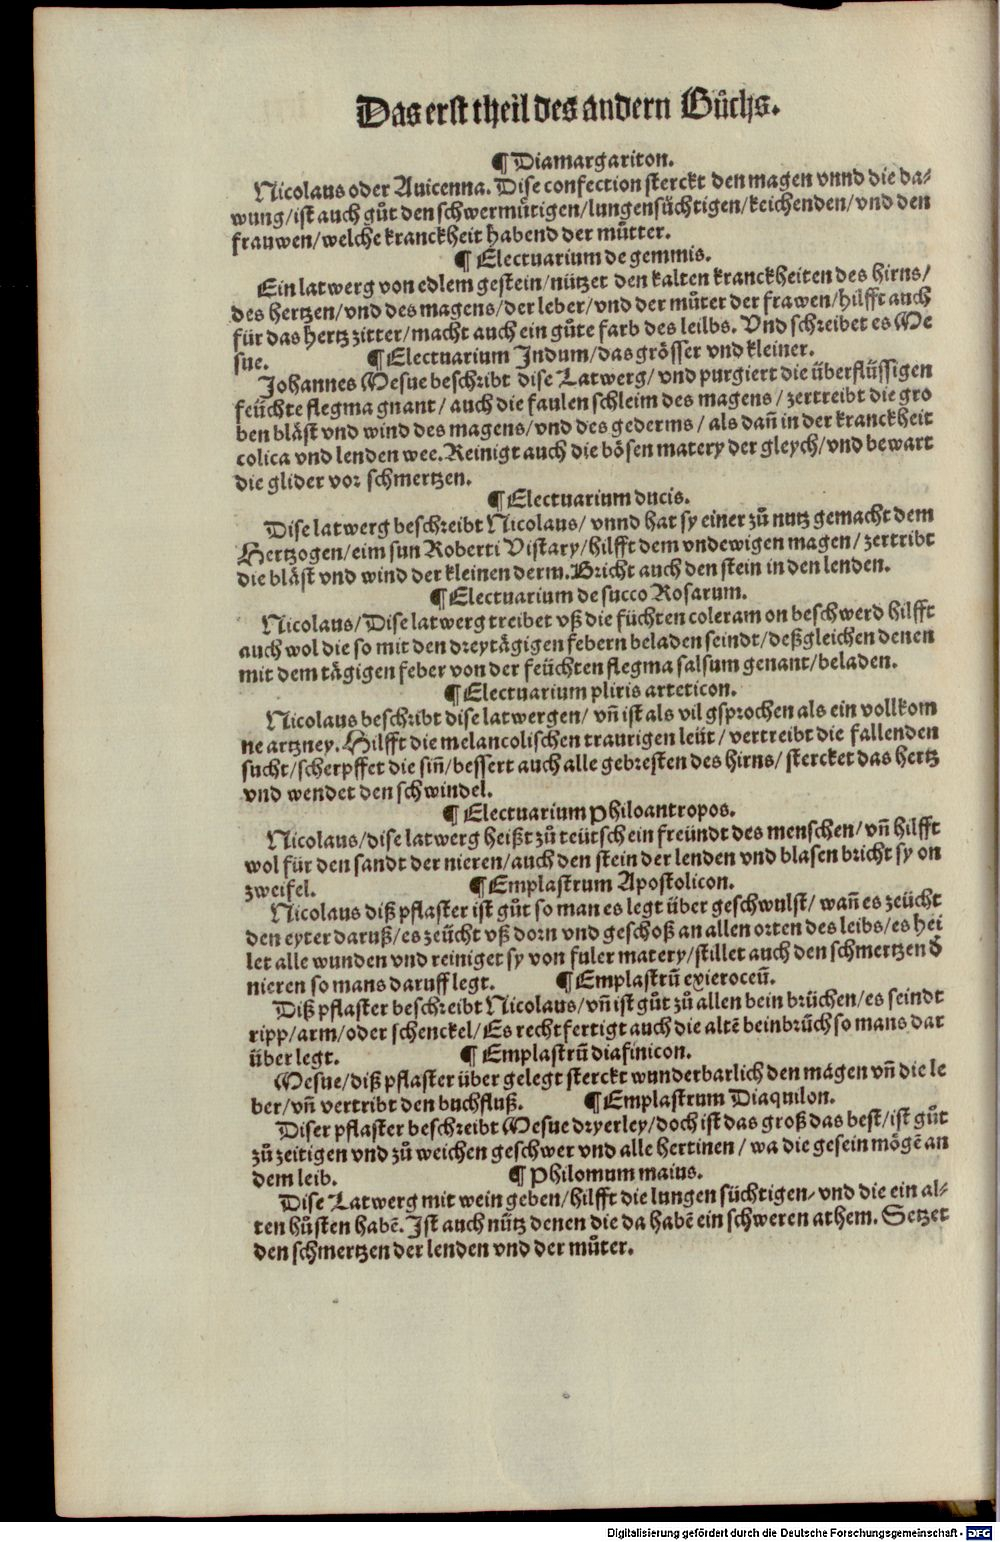 Das erst theil des andern Bůchs.
¶ Diamargariton.
Nicolaus oder Auicenna. Dise confection sterckt den magen vnnd die da-
wung/ist auch gůt den schwermůtigen/lungensüchtigen/keichenden/vnd den
frauwen/welche kranckheit habend der můtter.
¶ Electuarium de gemmis.
Ein latwerg von edlem gestein/nützet den kalten kranckheiten des hirns/
des hertzen/vnd des magens/der leber/vnd der můter der frawen/hilfft auch
für das hertz zitter/macht auch ein gůte farb des leilbs. Vnd schreibet es Me
sue. ¶ Electuarium Indum/das grösser vnd kleiner.
Johannes Mesue beschribt dise Latwerg/ vnd purgiert die überflüssigen
feüchte flegma gnant/ auch die faulen schleim des magens/ zertreibt die gro
ben bläst vnd wind des magens/vnd des gederms/ als dañ in der kranckheit
colica vnd lenden wee. Reinigt auch die bösen matery der gleych/vnd bewart
die glider vor schmertzen.
¶ Electuarium ducis.
Dise latwerg beschreibt Nicolaus/ vnnd hat sy einer zů nutz gemacht dem
Hertzogen/eim sun Roberti Vistary/hilfft dem vndewigen magen/ zertribt
die bläst vnd wind der kleinen derm. Bricht auch den stein in den lenden.
¶ Electuarium de succo Rosarum.
Nicolaus/Dise latwerg treibet vß die füchten coleram on beschwerd hilfft
auch wol die so mit den dreytägigen febern beladen seindt/deßgleichen denen
mit dem tägigen feber von der feüchten flegma salsum genant/beladen.
¶ Electuarium pliris arteticon.
Nicolaus beschribt dise latwergen/ vñ ist als vil gsprochen als ein vollkom
ne artzney. Hilfft die melancolischen traurigen leüt/ vertreibt die fallenden
sucht/scherpffet die siñ/bessert auch alle gebresten des hirns/ stercket das hertz
vnd wendet den schwindel.
¶ Electuarium Philoantropos.
Nicolaus/dise latwerg heißt zů teütsch ein freündt des menschen/vñ hilfft
wol für den sandt der nieren/auch den stein der lenden vnd blasen bricht sy on
zweifel. ¶ Emplastrum Apostolicon.
Nicolaus diß pflaster ist gůt so man es legt über geschwulst/ wañ es zeücht
den eyter daruß/es zeücht vß dorn vnd geschoß an allen orten des leibs/es hei
let alle wunden vnd reiniget sy von fuler matery/stillet auch den schmertzen d̄
nieren so mans daruff legt. ¶ Emplastrū exieroceū.
Diß pflaster beschreibt Nicolaus/vñ ist gůt zů allen bein brüchen/es seindt
ripp/arm/oder schenckel/Es rechtfertigt auch die altē beinbrüch so mans dar
über legt. ¶ Emplastrū diafinicon.
Mesue/diß pflaster über gelegt sterckt wunderbarlich den mágen vñ die le
ber/vñ vertribt den buchfluß. ¶ Emplastrum Diaquilon.
Diser pflaster beschreibt Mesue dryerley/doch ist das groß das best/ist gůt
zů zeitigen vnd zů weichen geschwer vnd alle hertinen/ wa die gesein mögē an
dem leib. ¶ Philomum maius.
Dise Latwerg mit wein geben/hilfft die lungen süchtigen/vnd die ein al-
ten hůsten habē. Ist auch nütz denen die da habē ein schweren athem. Setzet
den schmertzen der lenden vnd der můter.
Digitalisierung gefördert durch die Deutsche Forschungsgemeinschaft - DFG